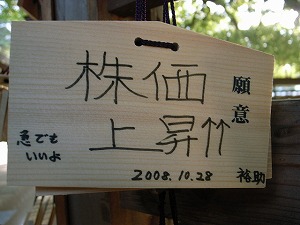 願意
株価
上昇⇈
急でも
いいよ
2008.10.28 裕助